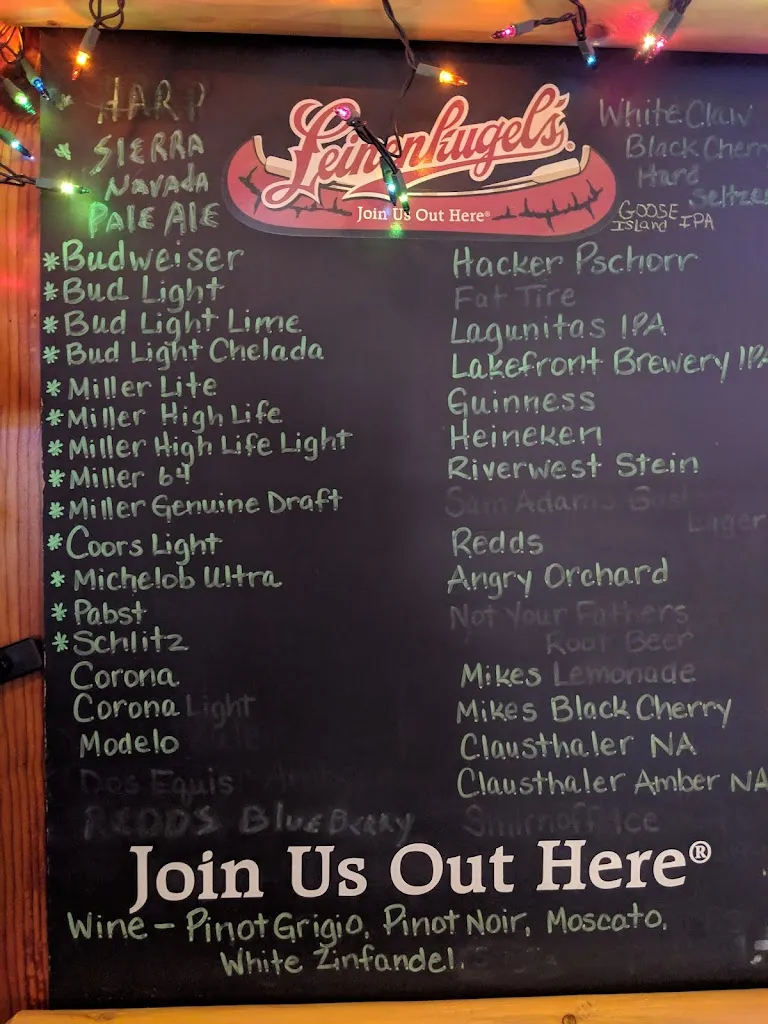 HARP
* SIERRA
NAVADA
PALE ALE
Leinenkugel's®
Join Us Out Here®
White Claw
Black Cherry
Hard
Seltzer
GOOSE
Island IPA
*Budweiser
*Bud Light
*Bud Light Lime
*Bud Light Chelada
*Miller Lite
*Miller High Life
*Miller High Life Light
*Miller 64
*Miller Genuine Draft
*Coors Light
*Michelob Ultra
*Pabst
*Schlitz
Corona
Corona Light
Modelo
Dos Equis
REDDS BlueBerry
Hacker Pschorr
Fat Tire
Lagunitas IPA
Lakefront Brewery IPA
Guinness
Heineken
Riverwest Stein
Sam Adams
Lager
Redds
Angry Orchard
Not Your Fathers
Root Beer
Mikes Lemonade
Mikes Black Cherry
Clausthaler NA
Clausthaler Amber NA
Smirnoff Ice
Join Us Out Here®
Wine - Pinot Grigio, Pinot Noir, Moscato,
White Zinfandel.